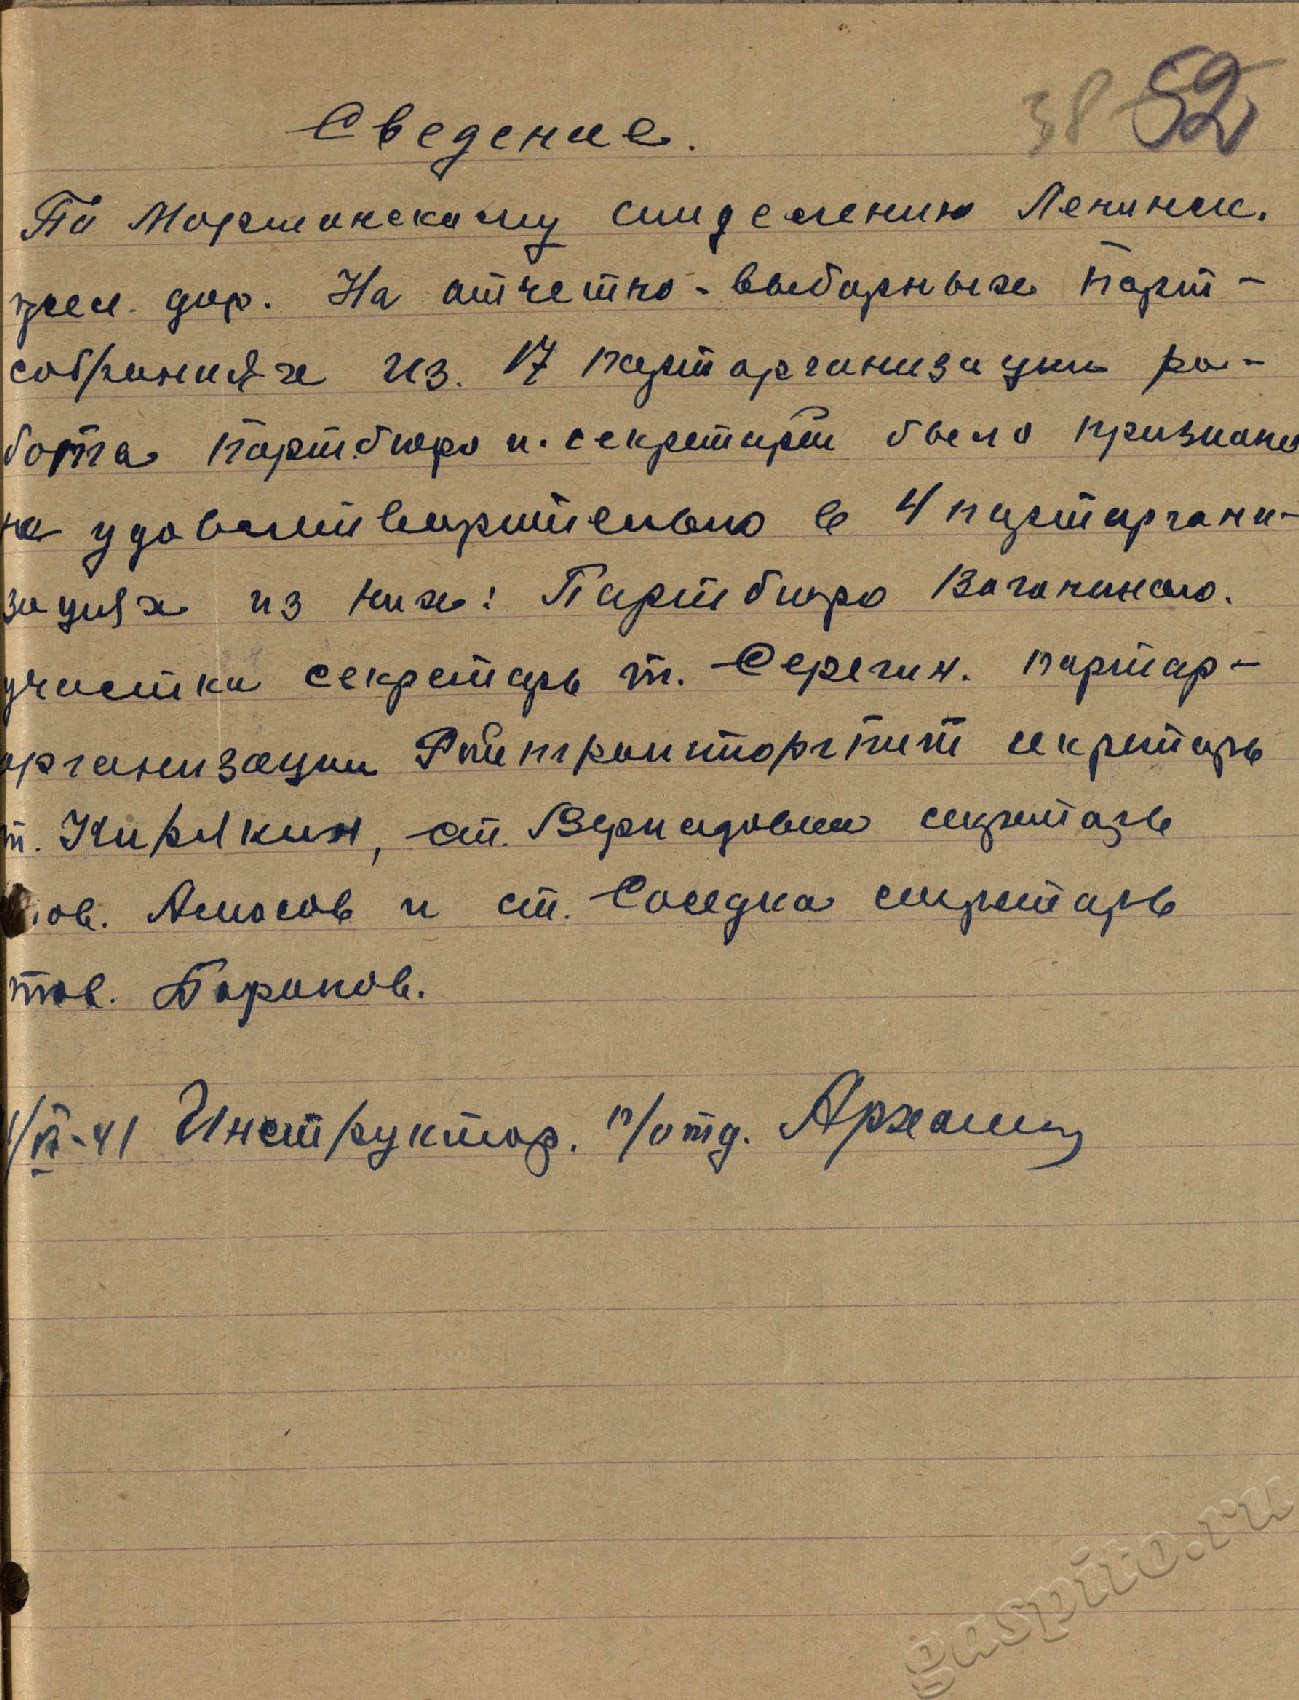 38 52
Сведение.
По Моршанскому отделению Ленинск.
жел. дор. На отчетно-выборных парт-
собраниях из 17 парторганизации ра-
бота партбюро и секретаря было признано
не удовлетворительно в 4 парторгани-
зациях из них: Партбюро Вагонного.
участка секретарь т. Серегин. партор-
организации секретарь
т. Кирякин, ст. Вернадовка секретарь
тов. Амосов и ст. Соседка секретарь
тов. Боронов.
1/VI-41 Инструктор. п/отд.
gaspito.ru